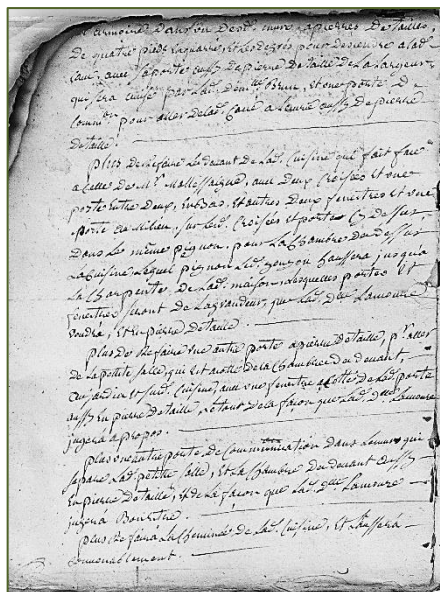 armoire dans un des murs a pierres de taille,
de quatre pieds en quarre, et les degres pour descendre a lad.
cave, avec sa porte aussy de pierre de taille de la largeur
qui sera avisé par lad. dem.lle et une porte de
comm.on pour aller de lad. cave a l'eurie aussy de pierre
de taille.
plus de refaire le devant de lad. cuisine qui fait face
a celle de M.r avec deux croisées et une
porte entre deux, en bas, et autres deux fenetres et une
porte au milieu, sur lesd. croisées et porte cy dessus,
dans le même pignon, pour la chambre du dessus
la cuisine, lequel pignon led. haussera jusqu'a
la charpente de lad. maison, lesquelles portes et
fenetres seront de la grandeur que lad. d.lle Lamoure
voudra, et en pierre de taille.
plus de refaire une autre porte a pierre de taille, p.r aller
de la petite salle, qui est a cotté de la chambre du devant,
au jardin et sur lad. cuisine, avec une fenetre a cotté de lad. porte
aussy en pierre de taille, le tout de la façon que lad. d.lle Lamoure
jugera a propos.
plus une autre porte de communication dans le mur qui
separe lad. petite salle, et la chambre du devant aussy
en pierre de taille, et de la façon que lad. d.lle Lamoure
jugera bon etre
plus refaira la cheminée de lad. cuisine, et haussera
convenablement.